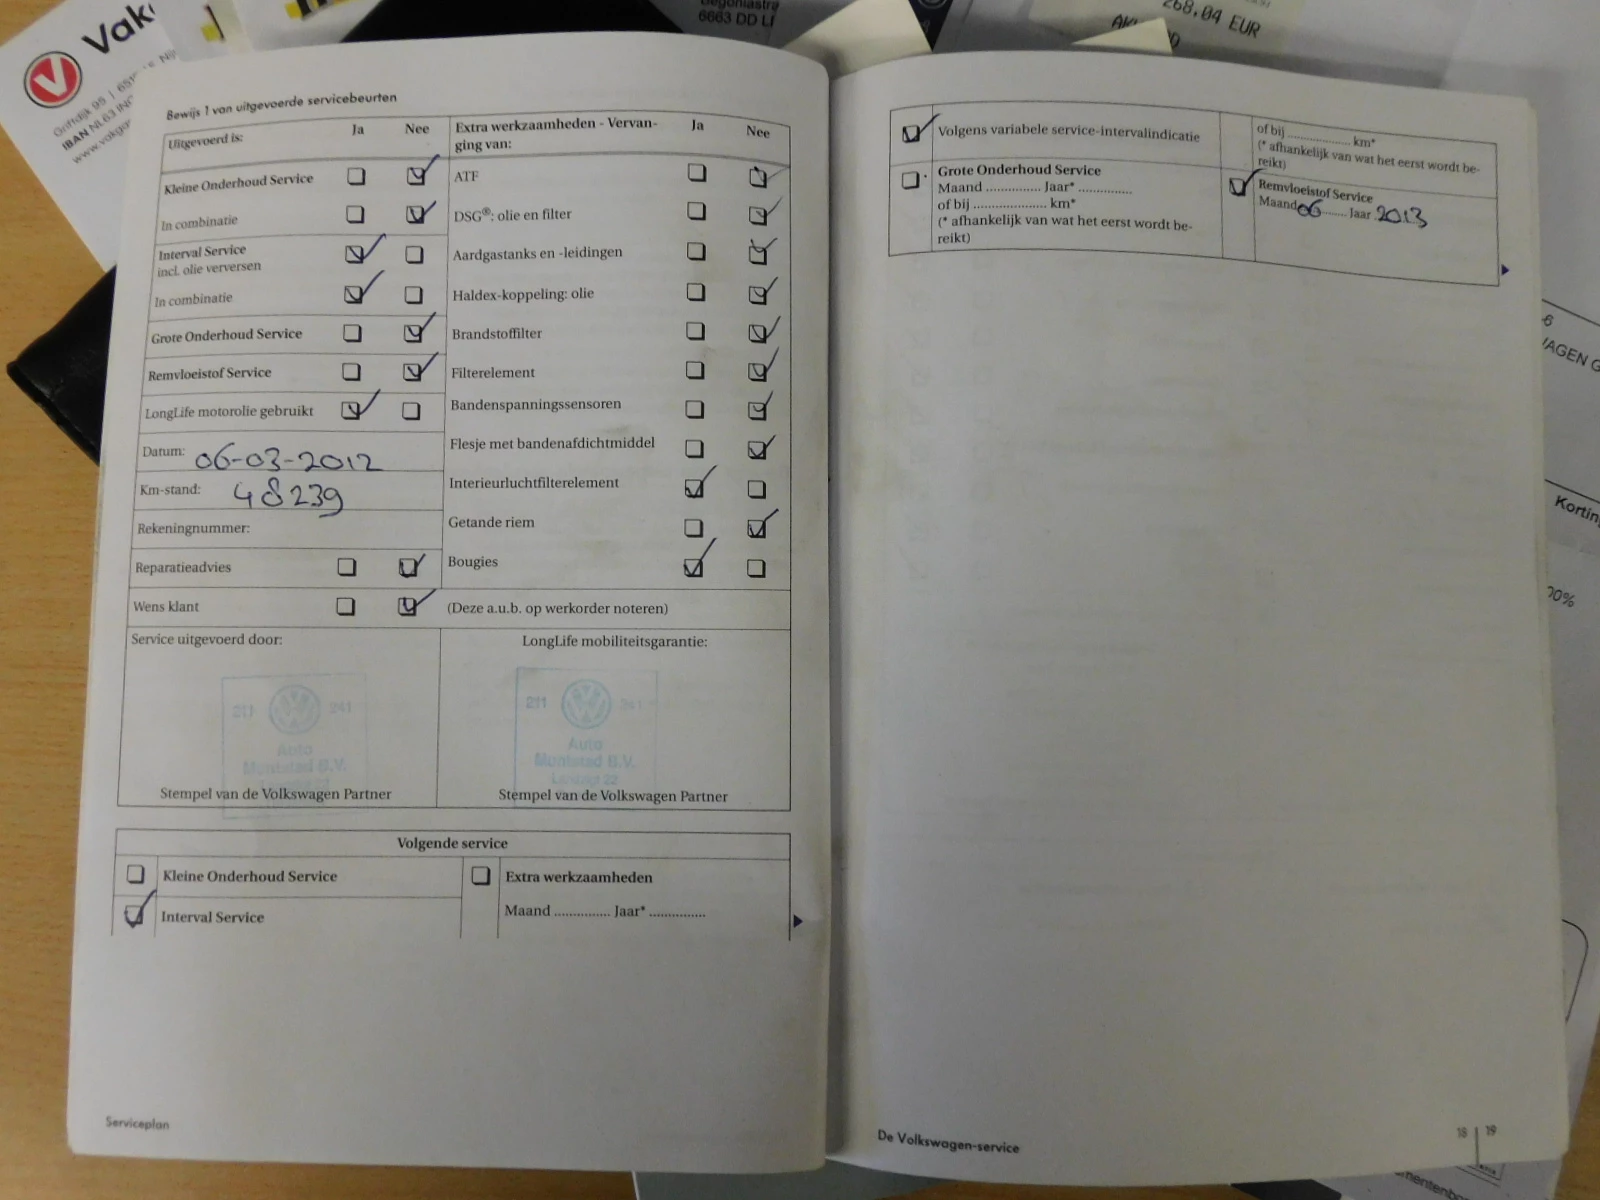 Vak
Griftdijk 95 | 651
IBAN NL63 ING
www.vakga
6663 DD LI
268,04 EUR
Bewijs 1 van uitgevoerde servicebeurten
Uitgevoerd is: Ja Nee
Kleine Onderhoud Service
In combinatie
Interval Service
incl. olie verversen
In combinatie
Grote Onderhoud Service
Remvloeistof Service
LongLife motorolie gebruikt
Datum: 06-03-2012
Km-stand: 48239
Rekeningnummer:
Reparatieadvies
Wens klant
Extra werkzaamheden - Vervan-
ging van: Ja Nee
ATF
DSG®: olie en filter
Aardgastanks en -leidingen
Haldex-koppeling: olie
Brandstoffilter
Filterelement
Bandenspanningssensoren
Flesje met bandenafdichtmiddel
Interieurluchtfilterelement
Getande riem
Bougies
(Deze a.u.b. op werkorder noteren)
Service uitgevoerd door:
211 241
Auto
Muntstad B.V.
Stempel van de Volkswagen Partner
LongLife mobiliteitsgarantie:
211 241
Auto
Muntstad B.V.
Stempel van de Volkswagen Partner
Volgende service
Kleine Onderhoud Service
Interval Service
Extra werkzaamheden
Maand .............. Jaar* ..............
Serviceplan
Volgens variabele service-intervalindicatie
Grote Onderhoud Service
Maand .............. Jaar* ..............
of bij ................... km*
(* afhankelijk van wat het eerst wordt be-
reikt)
of bij ................ km*
(* afhankelijk van wat het eerst wordt be-
reikt)
Remvloeistof Service
Maand 06 ....... Jaar 2013
De Volkswagen-service
18 | 19
Korting
00%